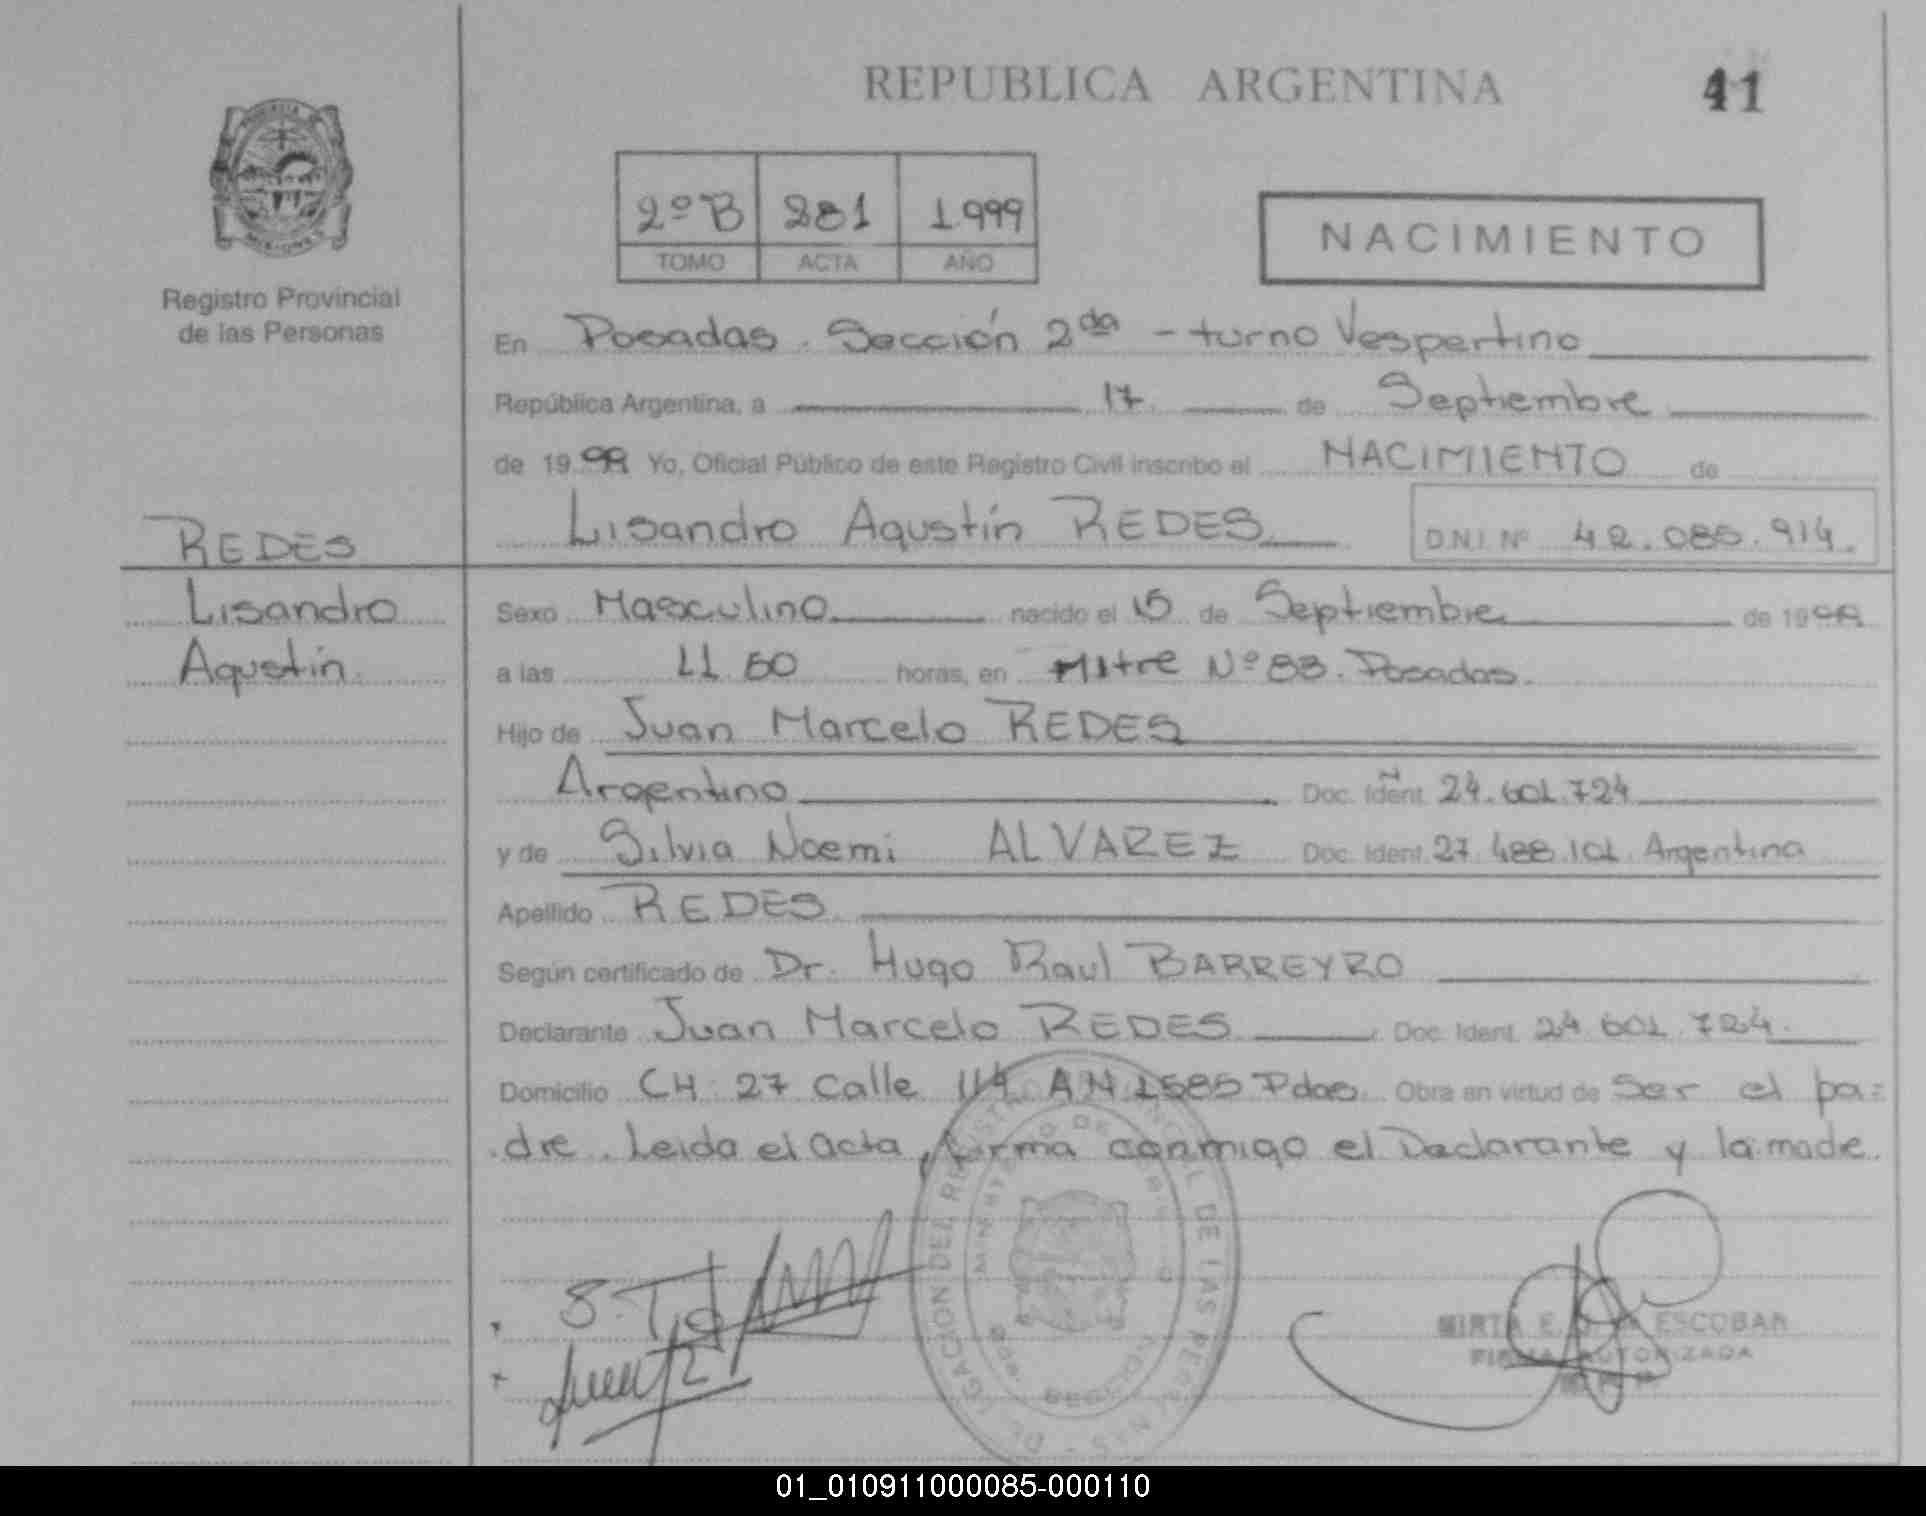 REPUBLICA ARGENTINA
41
2º B 281 1999
TOMO ACTA AÑO
NACIMIENTO
Registro Provincial
de las Personas
En Posadas. Sección 2da - turno Vespertino
República Argentina, a 17 de Septiembre
de 1999 Yo, Oficial Público de este Registro Civil inscribo el NACIMIENTO de
Lisandro Agustín REDES D.N.I. Nº 42.085.914.
REDES
Lisandro
Agustín
Sexo Masculino nacido el 15 de Septiembre de 1999
a las 11 50 horas, en Mitre Nº 83. Posadas.
Hijo de Juan Marcelo REDES
Argentino Doc. Ident. 24.601.724
y de Silvia Noemi ALVAREZ Doc. Ident. 27.488.101. Argentina
Apellido REDES
Según certificado de Dr. Hugo Raul BARREYRO
Declarante Juan Marcelo REDES Doc. Ident. 24.601.724.
Domicilio CH: 27 Calle 114 AN 1585 Pdas. Obra en virtud de ser el pa=
dre. Leida el acta, firma conmigo el Declarante y la madre.
MIRTA E. ESCOBAR
FIRMA AUTORIZADA
01_010911000085-000110